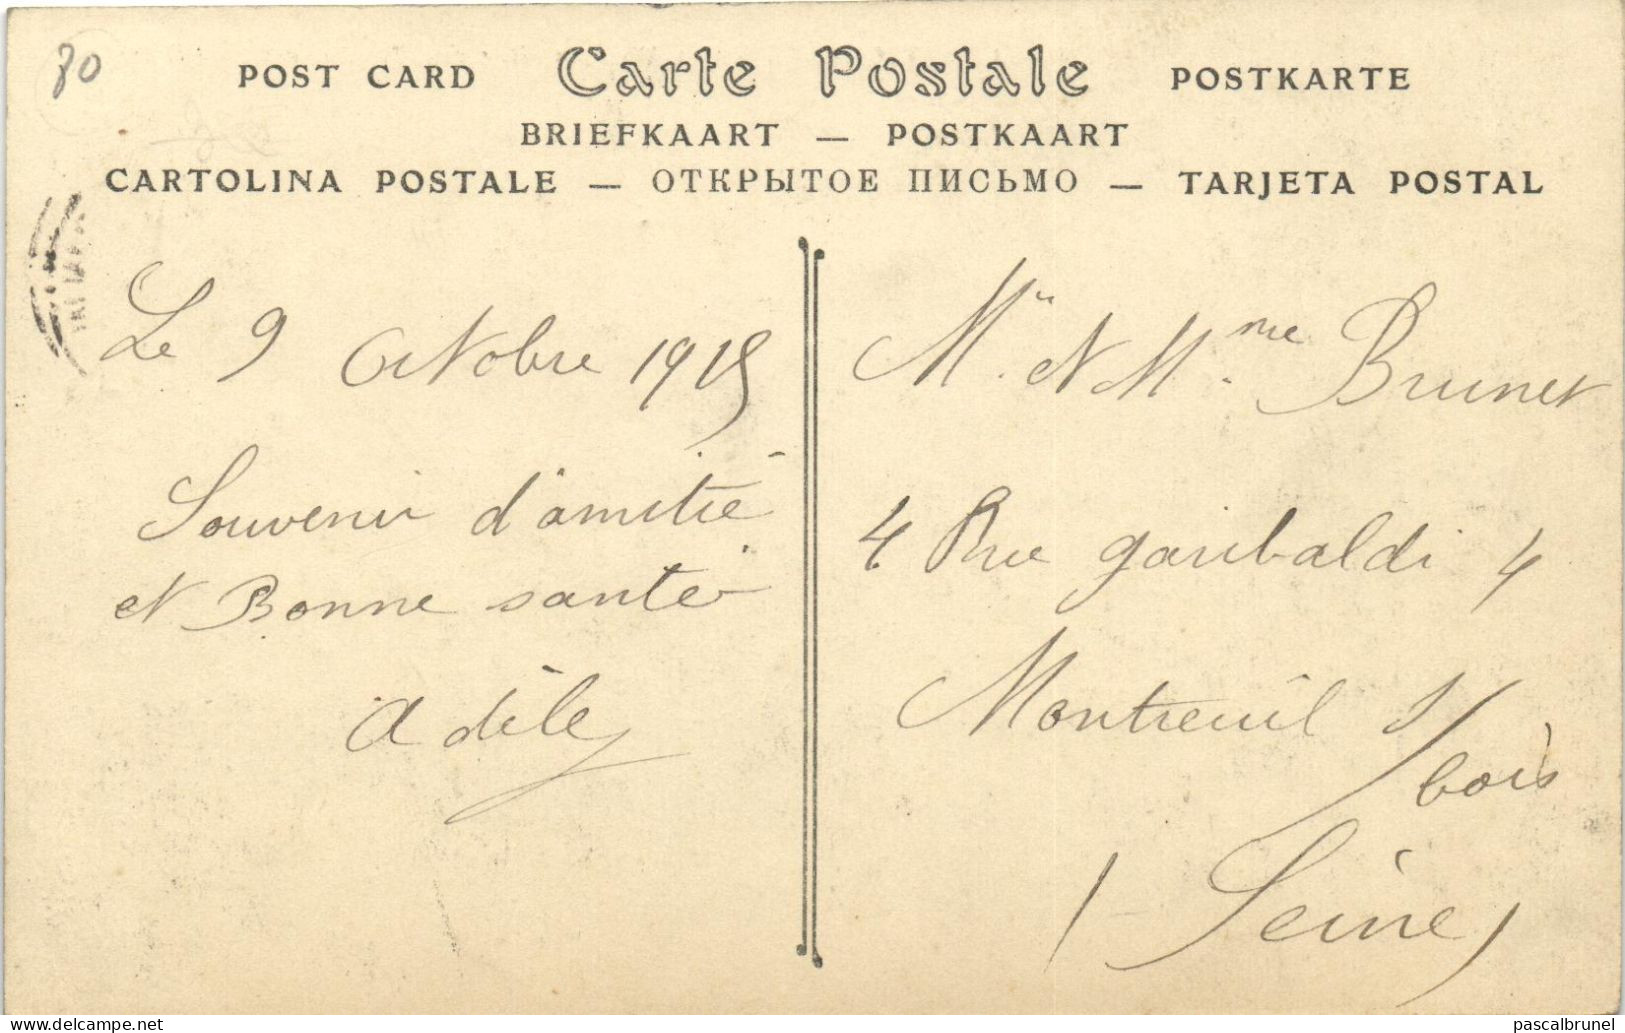 80
POST CARD Carte Postale POSTKARTE
BRIEFKAART — POSTKAART
CARTOLINA POSTALE — ОТКРЫТОЕ ПИСЬМО — TARJETA POSTAL
Le 9 Octobre 1915
Souvenir d'amitié
et Bonne santé
Adèle
Mr et Mme Brunet
4 Rue garibaldi 4
Montreuil s/
bois
(Seine)
www.delcampe.net
pascalbrunel